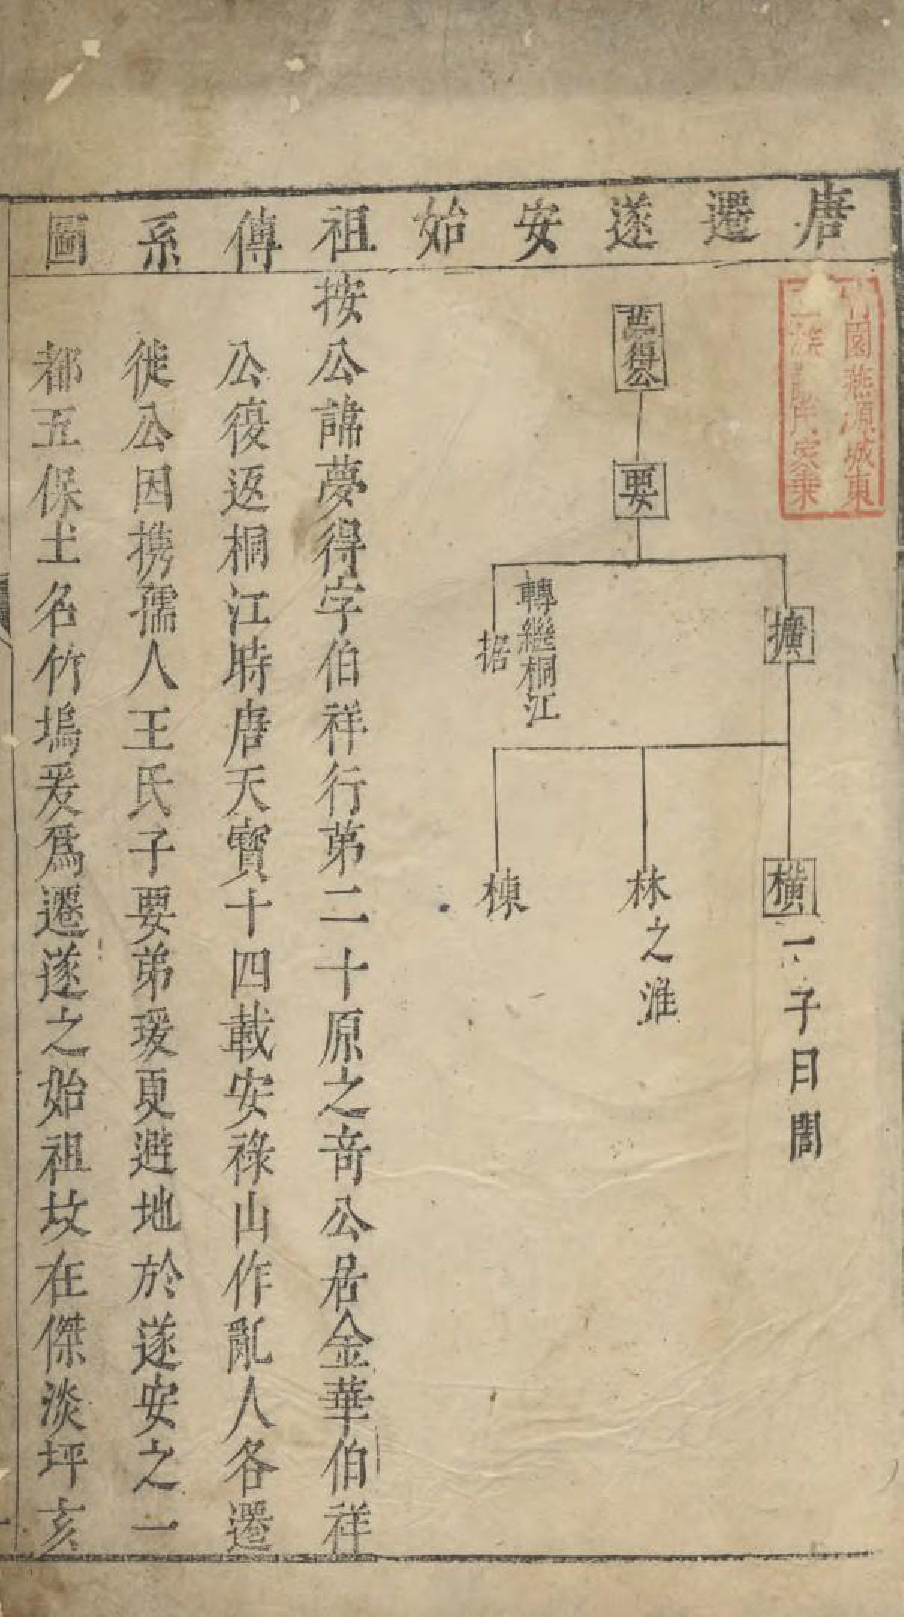 唐遷遂安始祖傳系圖
園燕源城東
夢得公
要
擴
轉繼桐江
据
橫
一子日誾
林之淮
棟
按公諱夢得字伯祥行第二十原之奇公居金華伯祥
公復返桐江時唐天寶十四載安祿山作亂人各遷
徙公因携孺人王氏子要弟瑗夏避地於遂安之一
都五保土名竹塢爰爲遷遂之始祖坟在傑淡坪亥